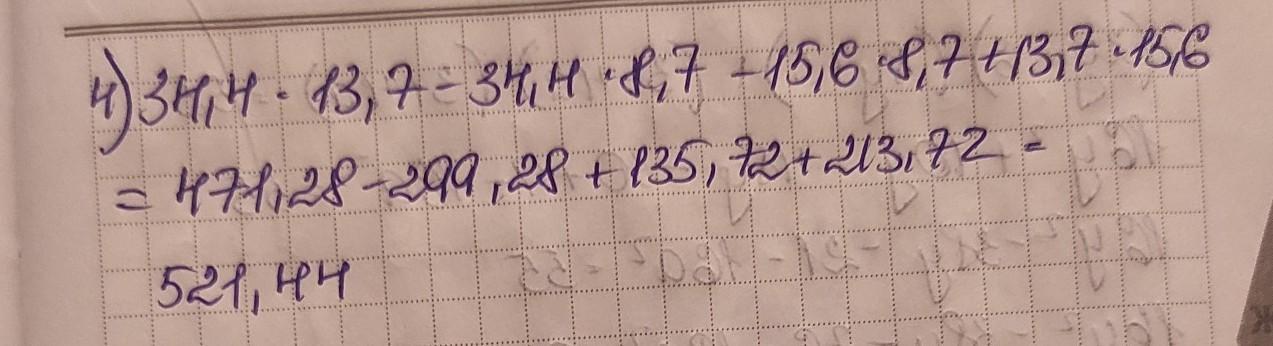 4) 34,4 · 13,7 - 34,4 · 8,7 - 15,6 · 8,7 + 13,7 · 15,6
= 471,28 - 299,28 + 135,72 + 213,72 =
521,44